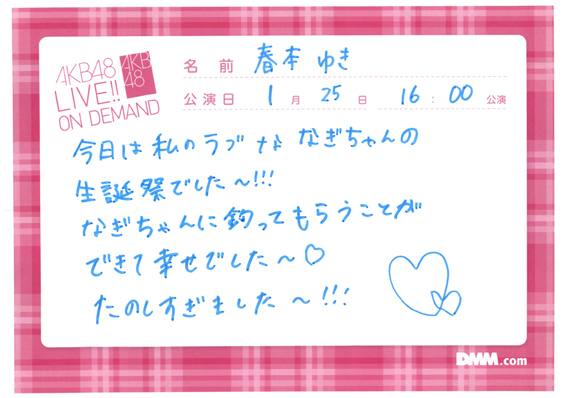 AKB48
LIVE!!
ON DEMAND
AKB
48
名前 春本 ゆき
公演日 1月 25日 16:00 公演
今日は私のラブな なぎちゃんの
生誕祭でした〜!!!
なぎちゃんに釣ってもらうことが
できて幸せでした〜♡
たのしすぎました〜!!!
DMM.com